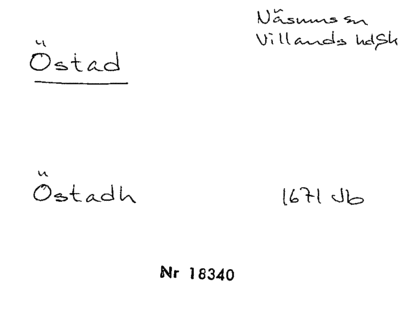 Näsums sn
Villands hd Sk
Östad
Östadh 1671 Jb
Nr 18340